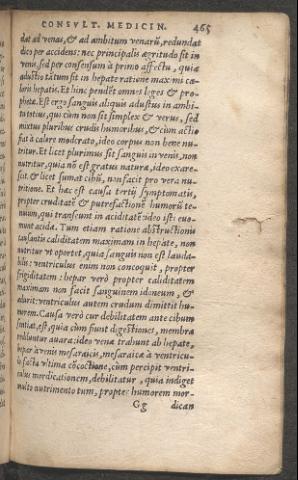 CONSVLT. MEDICIN. 465
dat ad venas, & ad ambitum venarū, redundat
dico per accidens: nec principalis ægritudo sit in
venis, sed per consensum à primo affectu, quia
adustio tātum sit in hepate ratione maximi ca-
loris hepatis. Et hinc pendēt omnes leges & pro-
phetæ. Est ergo sanguis aliquis adustus in ambi-
tu totius, qui cùm non sit simplex & verus, sed
mixtus pluribus crudis humoribus, & cùm actio
fiat à calore moderato, ideo corpus non bene nu-
tritur. Et licet plurimus sit sanguis in venis, non
nutritur, quia nō est gratus naturæ, ideo exare-
scit, & licet sumat cibū, non facit pro vera nu-
tritione. Et hæc est causa tertij symptomatis,
propter cruditatē & putrefactionē humorū te-
nuium, qui transeunt in aciditatē ideo isti euo-
munt acida. Tum etiam ratione abstructionis
caliditatem maximam in hepate, non
nutritur vt oportet, quia sanguis non est lauda-
bilis: ventriculus enim non concoquit, propter
frigiditatem: hepar verò propter caliditatem
maximam non facit sanguinem idoneum, &
adurit: ventriculus autem crudum dimittit hu-
morem. Causa verò cur debilitatem ante cibum
sentiāt, est, quia cùm fiunt digestiones, membra
euoluuntur auara: ideo venæ trahunt ab hepate,
hepar à venis mesaraicis, mesaraicæ à ventricu-
lo facta vltima cōcoctione, cùm percipit ventri-
culus mordicationem, debilitatur, quia indiget
multo nutrimento tum, propter humorem mor-
Gg dican